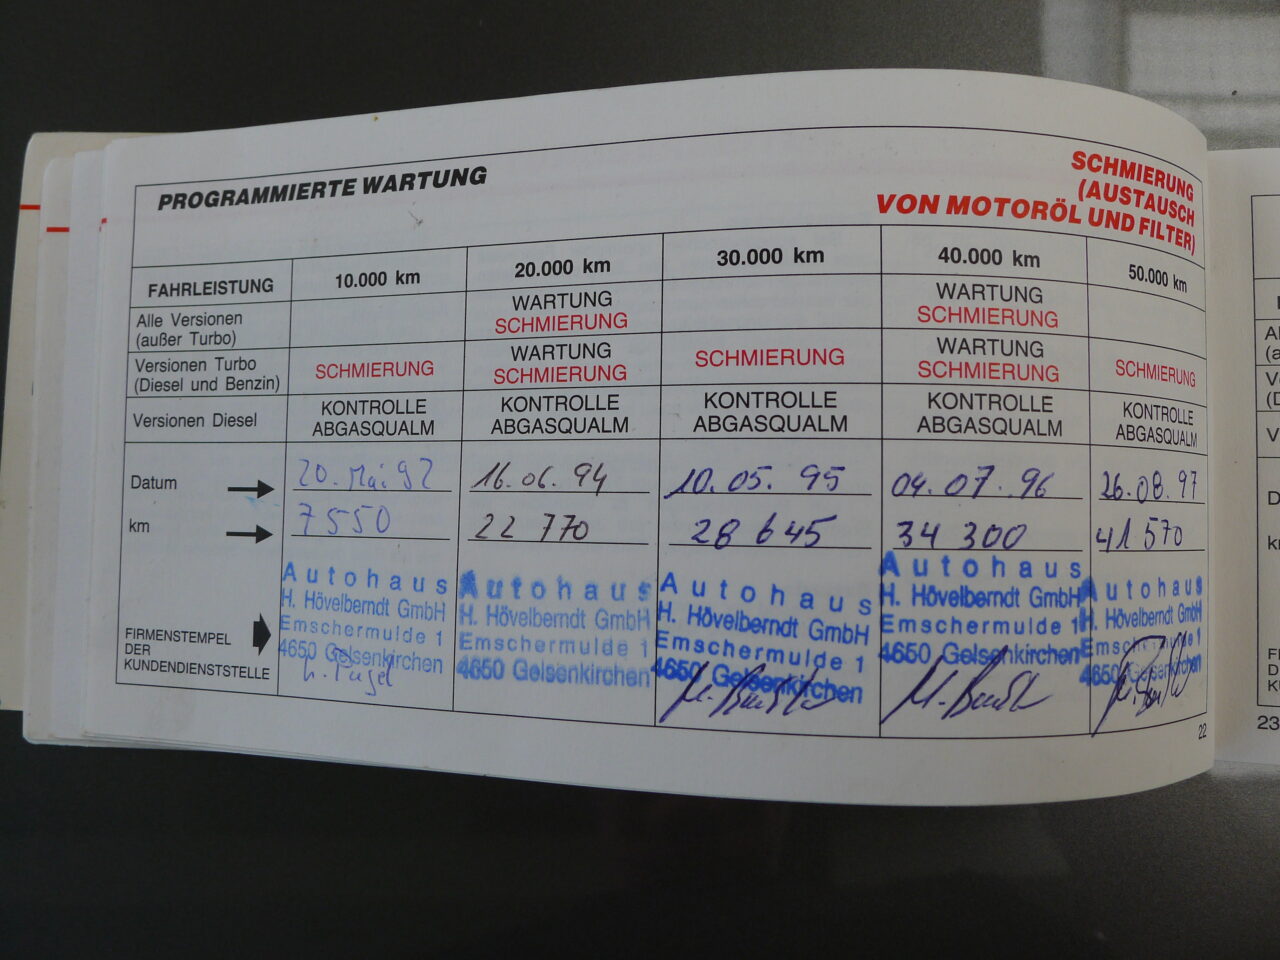 PROGRAMMIERTE WARTUNG
SCHMIERUNG
(AUSTAUSCH
VON MOTORÖL UND FILTER)
FAHRLEISTUNG 10.000 km 20.000 km 30.000 km 40.000 km 50.000 km
Alle Versionen WARTUNG WARTUNG
(außer Turbo) SCHMIERUNG SCHMIERUNG
Versionen Turbo SCHMIERUNG WARTUNG SCHMIERUNG WARTUNG SCHMIERUNG
(Diesel und Benzin) SCHMIERUNG SCHMIERUNG
Versionen Diesel KONTROLLE KONTROLLE KONTROLLE KONTROLLE KONTROLLE
ABGASQUALM ABGASQUALM ABGASQUALM ABGASQUALM ABGASQUALM
Datum 20. Mai 92 16.06.94 10.05.95 04.07.96 26.08.97
km 7550 22 770 28 645 34 300 41 570
FIRMENSTEMPEL
DER
KUNDENDIENSTSTELLE
Autohaus
H. Hövelberndt GmbH
Emschermulde 1
4650 Gelsenkirchen
Autohaus
H. Hövelberndt GmbH
Emschermulde 1
4650 Gelsenkirchen
Autohaus
H. Hövelberndt GmbH
Emschermulde 1
4650 Gelsenkirchen
Autohaus
H. Hövelberndt GmbH
Emschermulde 1
4650 Gelsenkirchen
Autohaus
H. Hövelberndt GmbH
Emschermulde 1
4650 Gelsenkirchen
22
23